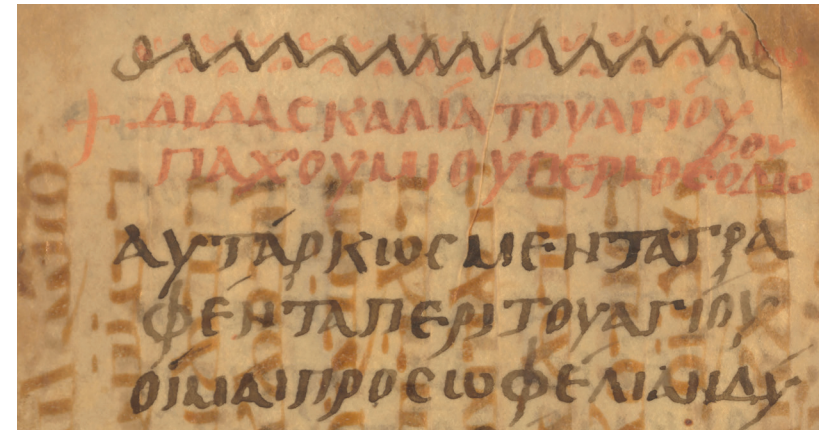 + ΔΙΔΑϹΚΑΛΊΑΤΟΥΑΓΙΟΥ
ΠΑΧΟΥΜΙΟΥΠΕΡΙ
ΑΥΤΆΡΚΙωϹΜΕΝΤΑΓΡΑ
ΦΈΝΤΑΠΕΡΙΤΟΥΑΓΊΟΥ
ΟΙΜΑΙΠΡΟϹωΦΈΛΙΑΝΔΥ